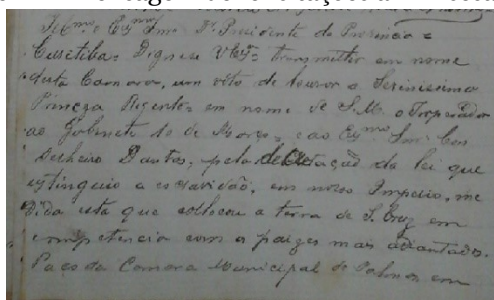 Ill.mo e Ex.mo Snr. Dr. Presidente da Provincia =
Curitiba = Digne se V.Exª transmittir em nome
desta Camara, um voto de louvor a Serenissima
Princeza Regente = em nome de S.M. o Imperador
ao Gabinete 10 de Março = e ao Ex.mo Snr. Con
selheiro Dantas, pela decretação da lei que
extinguio a escravidão, em nosso Imperio, me
dida esta que collocou a terra de S. Cruz em
competencia com os paizes mais adiantados.
Paço da Camara Municipal de Palmas em